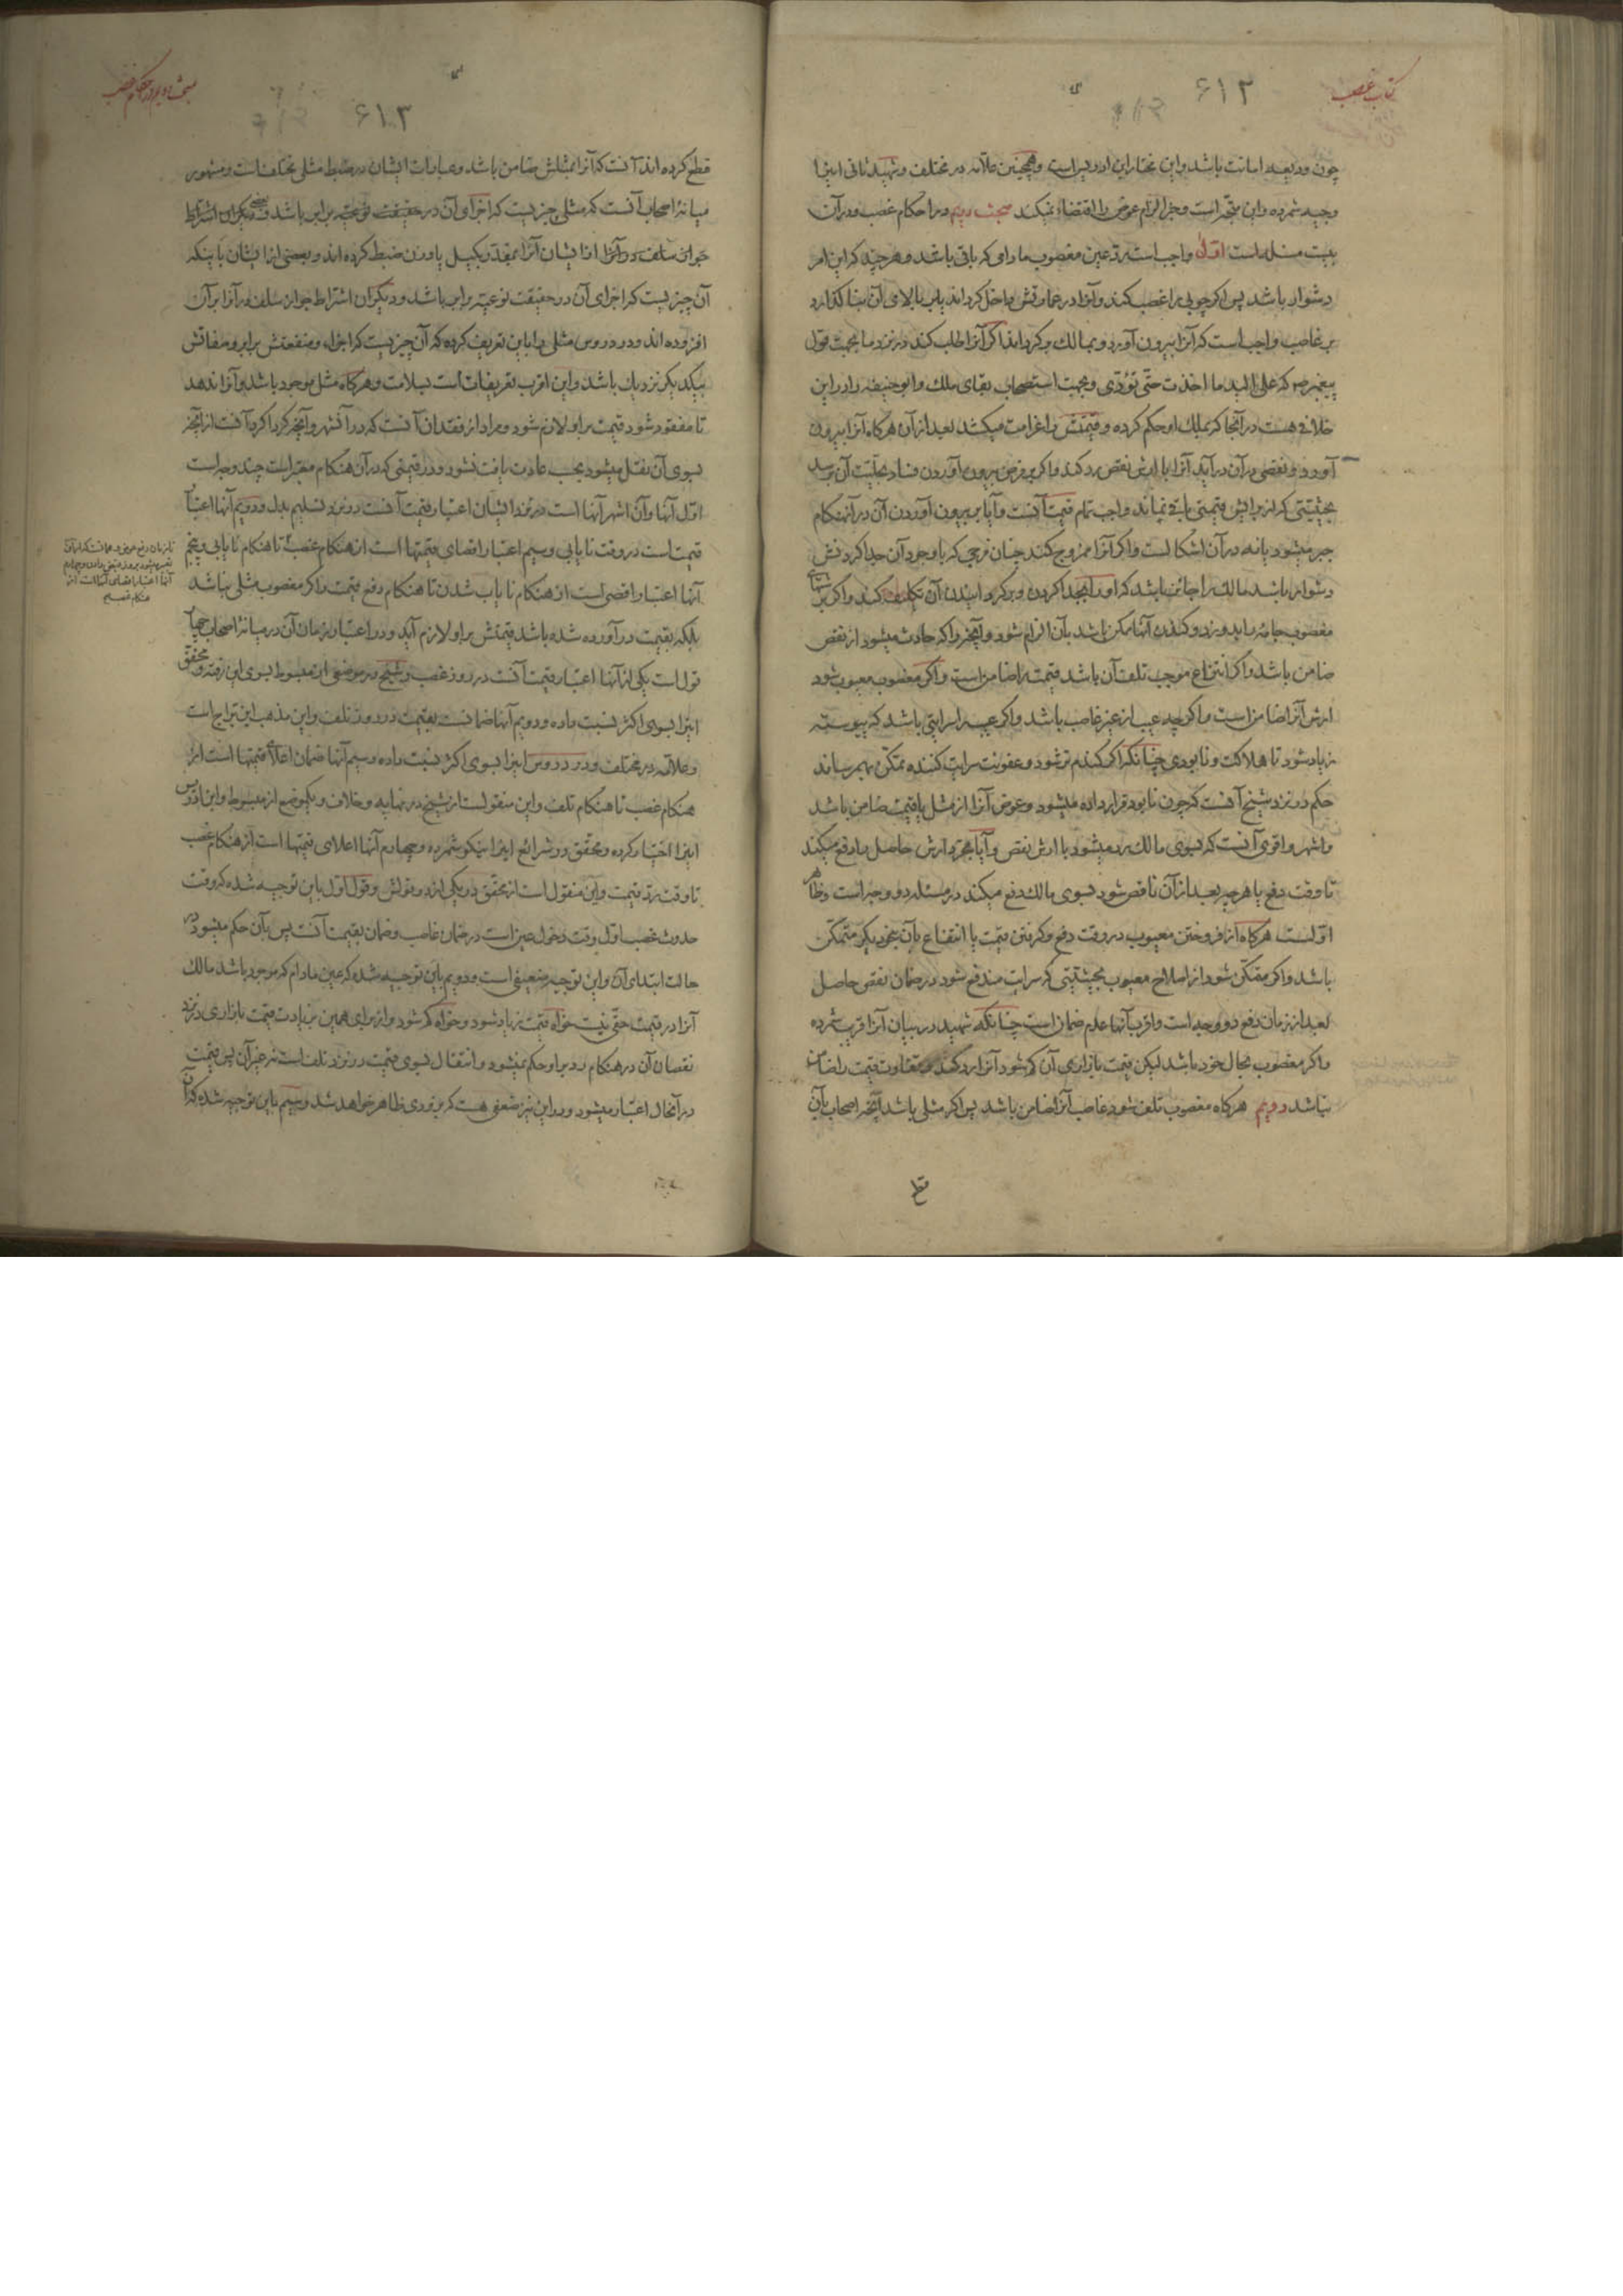 کتاب غصب
۶۱۲
چون ودیعه و امانت باشد و این مختار ابن ادریس است و همچنین علامه در مختلف و شهید ثانی اینرا
وجیه شمرده و این متجه است و جزا الزام عوض را اقتضاء نمیکند مبحث دویم در احکام غصب و در آن
بیست مسئله است اول واجب است رد عین مغصوب مادامی که باقی باشد و هر چند که این امر
دشوار باشد پس اگر چوبی را غصب کند و آنرا در عمارتش داخل گرداند یا بر بالای آن بنا گذارد
بر غاصب واجب است که آنرا بیرون آورد و بمالک برگرداند اگر آنرا طلب کند در نزد ما بجهت قول
پیغمبر ص که علی الید ما اخذت حتّی تؤدّی و بجهت استصحاب بقای ملک و ابو حنیفه را در این
خلافی هست در آنجا که بملک او حکم کرده و قیمتش را غرامت میکشد بعد از آن هرگاه آنرا بیرون
آورد و نقصی در آن درآید آنرا با ارش نقص رد کند و اگر بر فرض بیرون آوردن فساد بحدیت آن برسد
بحیثیتی که از برایش قیمتی باقی نماند واجب تمام قیمت آنست و آیا بر بیرون آوردن آن در آنهنگام
جبر میشود یا نه در آن اشکال است و اگر آنرا ممزوج کند چنان مزجی که با وجود آن جدا کردنش
دشوار باشد مالک را جائز باشد که او را بجدا کردن و برگردانیدن آن تکلیف کند و اگر
مغصوب جامه را بدوزد و کندن آنها ممکن باشد بآن الزام شود و آنچه را که حادث میشود از نقص
ضامن باشد و اگر انتزاع موجب تلف آن باشد قیمت را ضامن است و اگر مغصوب معیوب شود
ارش آنرا ضامن است و اگر چه عیب از غیر غاصب باشد و اگر عیب را سرایتی باشد که پیوسته
زیاد شود تا هلاکت و نابودی چنانکه اگر گندم تر شود و عفونت سرایت کننده تمکن بهم رساند
حکم در نزد شیخ آنست که چون نابود قرار داده میشود و عوض آنرا از مثل یا قیمت ضامن باشد
و اشهر و اقوی آنست که بسوی مالک رد میشود با ارش نقص و آیا مجرد ارش حاصل را دفع میکند
تا وقت دفع یا هر چه بعد از آن ناقص شود بسوی مالک دفع میکند در مسئله دو وجه است و ظاهر
اول است هرگاه از فروختن معیوب در وقت دفع و گرفتن قیمت یا انتفاع بآن بنحو دیگر متمکن
باشد و اگر متمکن شود از اصلاح معیوب بحیثیتی که سرایت مندفع شود در ضمان نقص حاصل
بعد از زمان دفع دو وجه است و اقرب آنها عدم ضمان است چنانکه شهید در بیان آنرا اقرب شمرده
و اگر مغصوب بحال خود باشد لیکن قیمت بازاری آن کم شود آنرا رد کند و تفاوت قیمت را ضامن
نباشد دویم هرگاه مغصوب تلف شود غاصب آنرا ضامن باشد پس اگر مثلی باشد آنچه اصحاب بآن
قطع
مبحث دویم در احکام غصب
۶۱۳
قطع کرده اند آنست که آنرا بمثلش ضامن باشد و عبارات ایشان در ضبط مثلی مختلف است و مشهور
میانۀ اصحاب آنست که مثلی چیزیست که اجزای آن در حقیقت نوعیه برابر باشد و دیگران اشتراط
جواز سلف در آنرا از ایشان آنرا بمقدر بکیل یا وزن ضبط کرده اند و بعضی از ایشان باینکه
آن چیزیست که اجزای آن در حقیقت نوعیه برابر باشد و دیگران اشتراط جواز سلف در آنرا بر آن
افزوده اند و در دروس مثلی را باین تعریف کرده که آن چیزیست که اجزاء و منفعتش برابر و صفاتش
بیکدیگر نزدیک باشد و این اقرب تعریفات است بسلامت و هرگاه مثل موجود باشد و آنرا ندهد
تا مفقود شود قیمت بر او لازم شود و مراد از فقدان آنست که در آنشهر و آنچه گرداگرد آنست از آنچه
بسوی آن نقل میشود بحسب عادت یافت نشود و در قیمتی که در آن هنگام معتبر است چند وجه است
اول آنها و آن اشهر آنها است در نزد ایشان اعتبار قیمت آنست در نزد تسلیم بدل و دویم آنها اعتبار
قیمت است در وقت نایابی و سیم اعتبار اقصای قیمتها است از هنگام غصب تا هنگام نایابی و پنجم
آنها اعتبار اقصی است از هنگام نایاب شدن تا هنگام دفع قیمت و اگر مغصوب مثلی نباشد
بلکه بقیمت در آورده شده باشد قیمتش بر او لازم آید و در اعتبار زمان آن در میانۀ اصحاب چهار
قول است یکی از آنها اعتبار قیمت آنست در روز غصب و شیخ در موضعی از مبسوط بسوی این رفته و محقق
اینرا بسوی اکثر نسبت داده و دویم آنها ضمانست بقیمت در روز تلف و این مذهب ابن براج است
و علامه در مختلف و در دروس اینرا بسوی اکثر نسبت داده و سیم آنها ضمان اعلای قیمتها است از
هنگام غصب تا هنگام تلف و این منقولست از شیخ در نهایه و خلاف و یکموضع از مبسوط و ابن ادریس
اینرا اختیار کرده و محقق در شرائع اینرا نیکو شمرده و چهارم آنها اعلای قیمتها است از هنگام غصب
تا وقت رد قیمت و این منقول است از محقق در یکی از دو قولش و قول اول باین توجیه شده که وقت
حدوث غصب اول وقت دخول عین است در ضمان غاصب و ضمان بقیمت آنست پس بآن حکم میشود در
حالت ابتدای آن و این توجیه ضعیفی است و دویم باین توجیه شده که عین مادام که موجود باشد مالک
آنرا در قیمت حقی نیست خواه قیمت زیاد شود و خواه کم شود و از برای همین بزیادت قیمت بازاری در نزد
نقصان آن در هنگام رد بر او حکم نمیشود و انتقال بسوی قیمت در نزد تلف است نه غیر آن پس قیمت
در آنحال اعتبار میشود و در این نیز ضعفی هست که بزودی ظاهر خواهد شد و سیم باین توجیه شده که آن
آنها اعتبار اقصای آنها است از
هنگام غصب